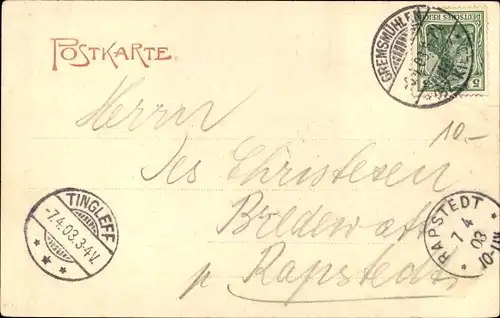 POSTKARTE
GREMSMÜHLEN
DEUTSCHES REICH
5
Herrn
10.-
Jes Christesen
TINGLEFF
-7.4.03.3-4V.
* * *
RAPSTEDT
7 4
03
10-11
p Rapstedt